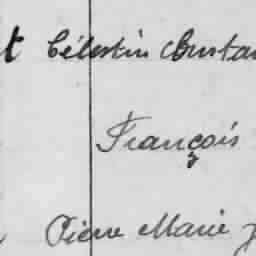 t Célestin Constan
François
Pierre Marie J